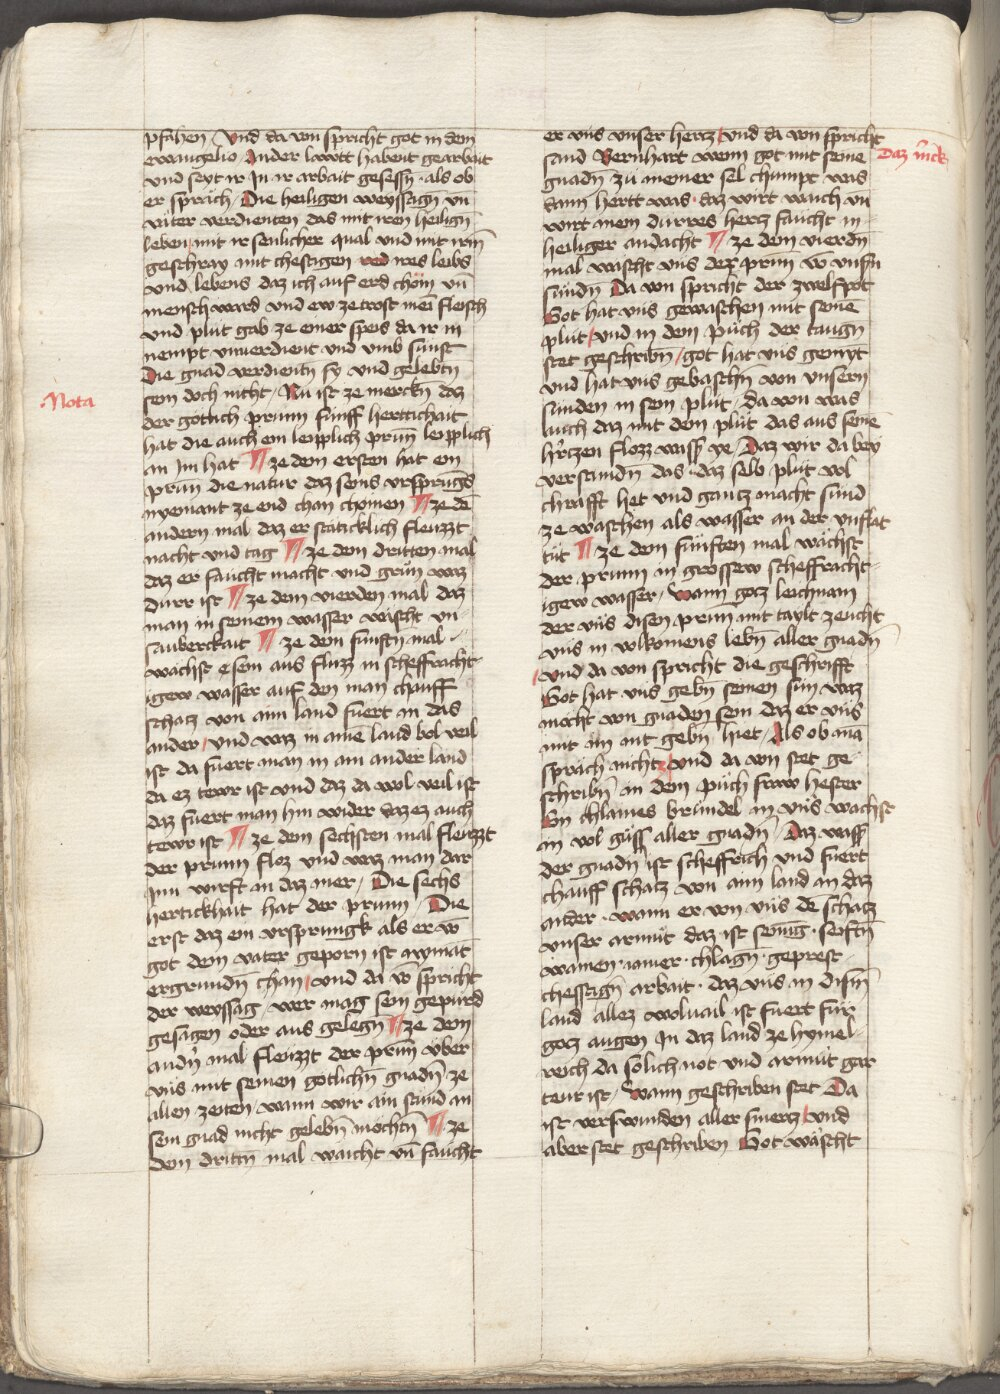 pfahen / Und da von spricht got in dem
ewangelio Ander lewtt habent gearbait
und seyt ir In ir arbait gesessñ · als ob
er spräch / Die heiligen weyssagñ vñ
väter verdienten das mit iren heiligñ
leben mit ir senlicher qual vnd mit irm̃
geschray mit chestigen ires leibs
vnd lebens daz ich auf erd chöm vñ
mensch ward vnd ew ze trost mei fleisch
vnd plüt gab ze einer speis da ir in
nempt vnuerdient vnd vmb sünst
Die gnad verdientñ sy vnd gelebtñ
sein doch nicht / Nü ist ze merckñ daz
Nota
der götlich prunn fünff herttichait
hat die auch ein leiplich prün̄ leipplich
an im hat ¶ ze dem ersten hat ein
prün die natur daz seins vrsprüngs
nyemant ze end chan chömen ¶ ze dē
andern mal daz er stäticklich fleuzzt
nacht vnd tag ¶ ze dem dritten mal
daz er faücht macht vnd grün waz
dürr ist ¶ ze dem vierden mal daz
man in seinem wasser wäscht vn
sauberckait ¶ ze dem fünftñ mal
wachst sein aus fluzz in scheffracht
igew wasser auf den man chauff
schatz von aim land fuert in das
ander / vnd waz in aine land vol veil
ist da fuert man in ain ander land
da ez tewr ist vnd daz da wol veil ist
daz fuert man hin wider da ez auch
tewr ist ¶ ze dem sechsten mal fleuzzt
der prunn floz vnd waz man dar
inn wirft an daz mer / Die sechs
hertickhait hat der prunn / Die
erst daz ein vrsprungk als er vō
got dem vater geporn ist nymāt
ergründñ chan / vnd da vō spricht
der weyssag / wer mag sein gepürd
gesagen oder aus gelegñ ¶ ze dem
andñ mal fleüzzt der prün̄ über
vns mit seinen götlichñ gnadñ ze
allen zeiten / wann wir ain stund an
sein gnad nicht gelebñ möchtñ ¶ ze
dem drittñ mal waicht vñ faücht
er vns vnser hertz / vnd da von spricht
sand Bernhart wenn got mit seine
Daz m̄ck
gnadñ zü meiner sel chumpt was
dann hertt was · daz wirt waich vñ
wirt mein dürres hertz faücht in
heiliger andacht ¶ ze dem vierdñ
mal wäscht vns der prün vō vnsñ
sündñ Da von spricht der zwelfpot
Got hat vns gewaschen mit seinē
plüt / vnd in dem püch der taugñ
stet geschribñ / got hat vns gemynt
vnd hat vns gebaschñ von vnsern
sünden in sein plüt / da von was
auch daz mit dem plüt das aus seinē
hr̄tzen flozz wass̄ ye / Daz wir da bey
verstandñ das · daz selb plüt vol
chrafft het vnd gantz macht sünd
ze waschen als wasser an der vnflat
tüt ¶ ze dem fünften mal wächst
der prunn in grossew scheffracht
igew wasser / wann gotz leichnam
der vns disen prün̄ mit taylt zeucht
vns in volkomens lebñ aller gnadñ
/ vnd da von spricht die geschrifft
Got hat vns gebñ seinen sün waz
möcht von gnaden sein daz er vns
mit im nit gebñ hiet / Als ob mā
spräch nichtz / vnd da von stet ge
schribñ an dem püch fraw hester
Ein chlaines bründel in vns wachst
in vol güss aller gnadñ / Daz wass̄
der gnadñ ist scheffreich vnd fuert
chauff schatz von aim land an daz
ander · wann er von vns dē schatz
vnser armüt daz ist seinūg · seiftñ
wainen · iamer · chlagñ · geprest
chesstigñ arbait · daz vns in disñ
land allez wolvail ist fuert für
gotz augen In daz land ze hymel
reich da sölich not vnd armüt gar
teur ist / Wann geschriben stet Da
ist verswunden aller smertz / vnd
aber stet geschriben Got wäscht